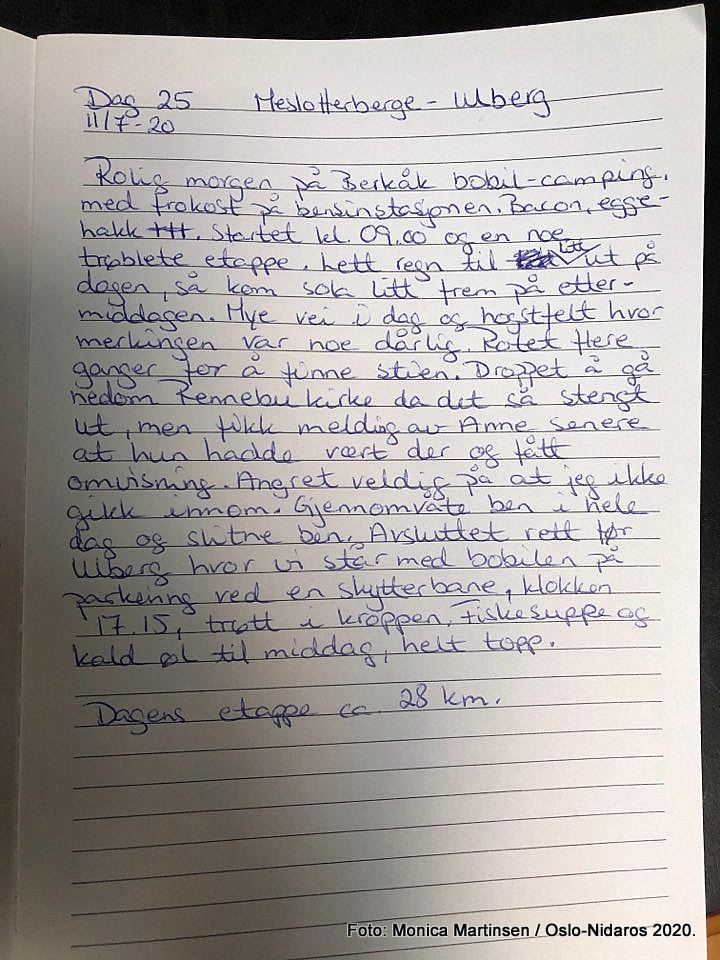 Dag 25 Meslotterberge - Ulberg
11/7-20
Rolig morgen på Berkåk bobil-camping.
med frokost på bensinstasjonen. Bacon, egge-
hakk. Startet kl. 09.00 og en noe
trøblete etappe. Lett regn til litt ut på
dagen, så kom sola litt frem på etter-
middagen. Mye vei i dag og hogstfelt hvor
merkingen var noe dårlig. Rotet flere
ganger for å finne stien. Droppet å gå
nedom Rennebu kirke da det så stengt
ut, men fikk melding av Anne senere
at hun hadde vært der og fått
omvisning. Angret veldig på at jeg ikke
gikk innom. Gjennomvåte ben i hele
dag og slitne ben. Avsluttet rett før
Ulberg hvor vi står med bobilen på
parkering ved en skytterbane, klokken
17.15, trøtt i kroppen. Fiskesuppe og
kald øl til middag, helt topp.
Dagens etappe ca 28 km.
Foto: Monica Martinsen / Oslo-Nidaros 2020.